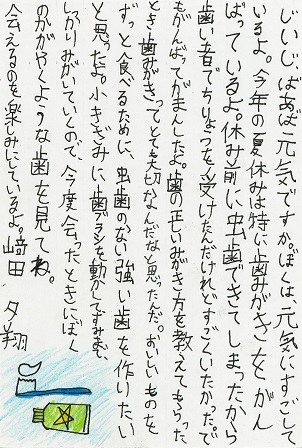 じいじ、ばあば元気ですか。ぼくは元気にすごして
いるよ。今年の夏休みは特に歯みがきをがん
ばっているよ。休み前に虫歯ができてしまったから
歯い者でちりょうを受けたんだけれどすごくいたかった。で
もがんばってがまんしたよ。歯の正しいみがき方を教えてもらった
とき、歯みがきってとても大切なんだなと思ったんだ。おいしいものを
ずっと食べるために、虫歯のない強い歯を作りたい
と思ったよ。小きざみに、歯ブラシを動かしてすみずみ、
しっかりみがいていくので、今度会ったときにぼく
のかがやくような歯を見てね。
会えるのを楽しみにしているよ。﨑田 夕翔